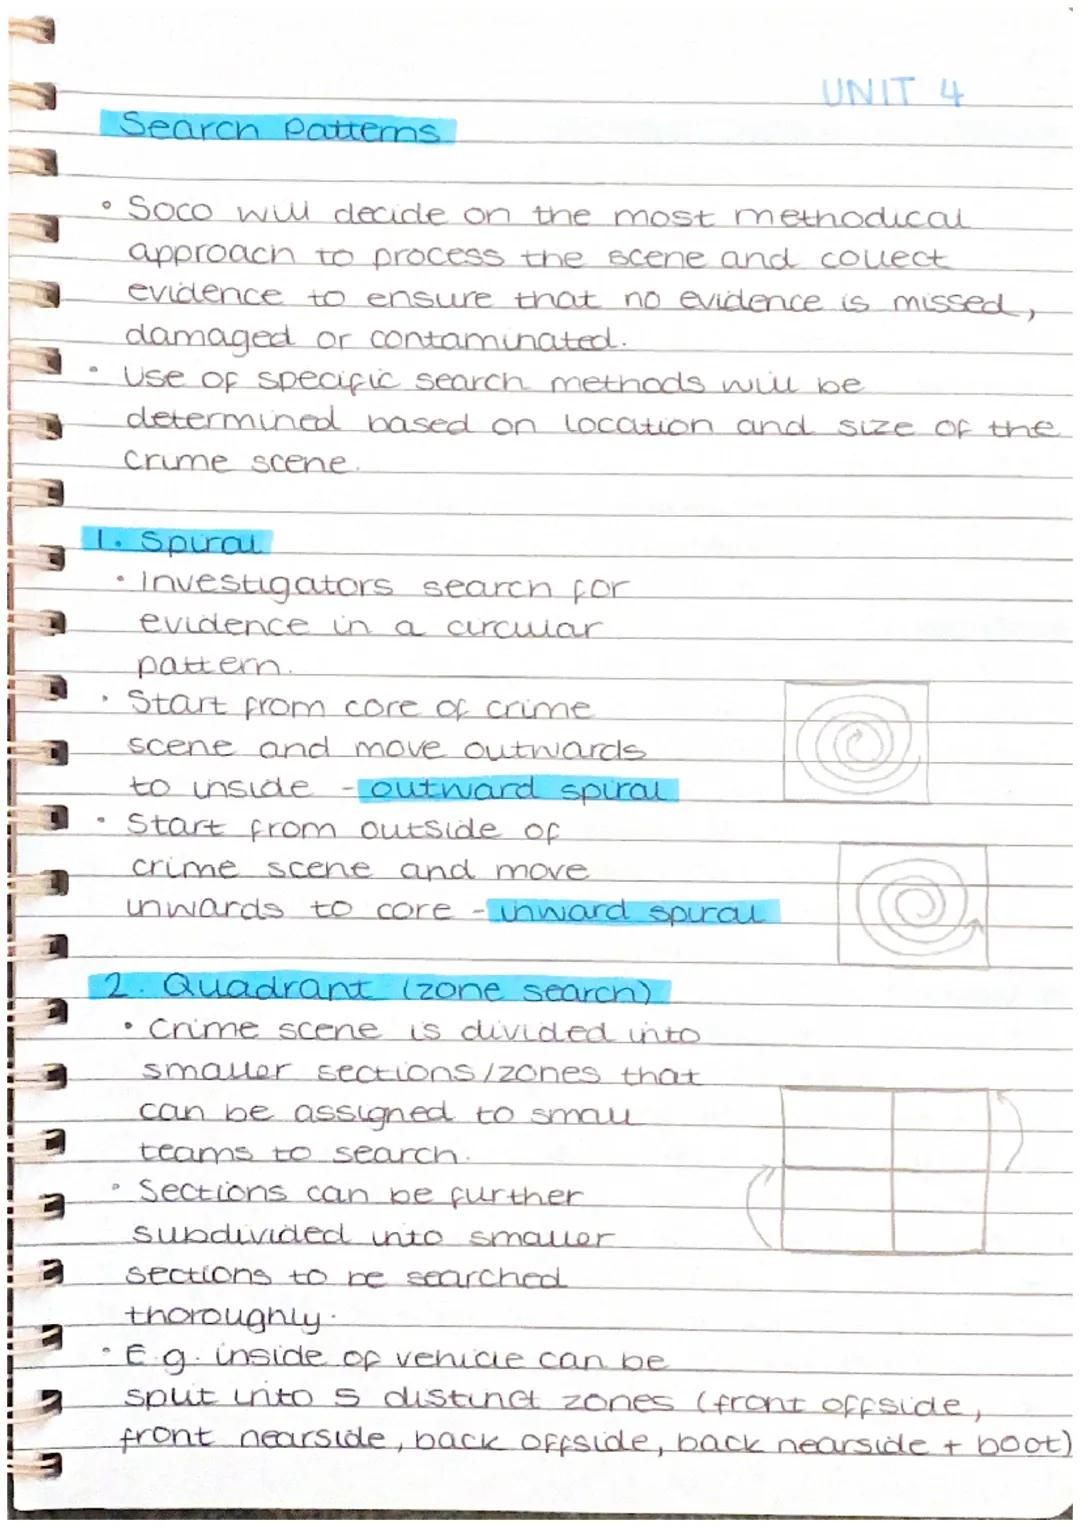 UNIT 4
Search Patterns
• Soco will decide on the most methodical
approach to process the scene and collect
evidence to ensure that no evidence is missed,
damaged or contaminated.
• Use of specific search methods will be
determined based on location and size of the
crime scene.
1. Spiral
• Investigators search for
evidence in a circular
pattern.
• Start from core of crime
scene and move outwards
to inside - outward spiral
• Start from outside of
crime scene and move
inwards to core - inward spiral
2. Quadrant (zone search)
• Crime scene is divided into
smaller sections/zones that
can be assigned to small
teams to search.
• Sections can be further
subdivided into smaller
sections to be searched
thoroughly.
• E.g. inside of vehicle can be
split into 5 distinct zones (front offside,
front nearside, back offside, back nearside + boot)